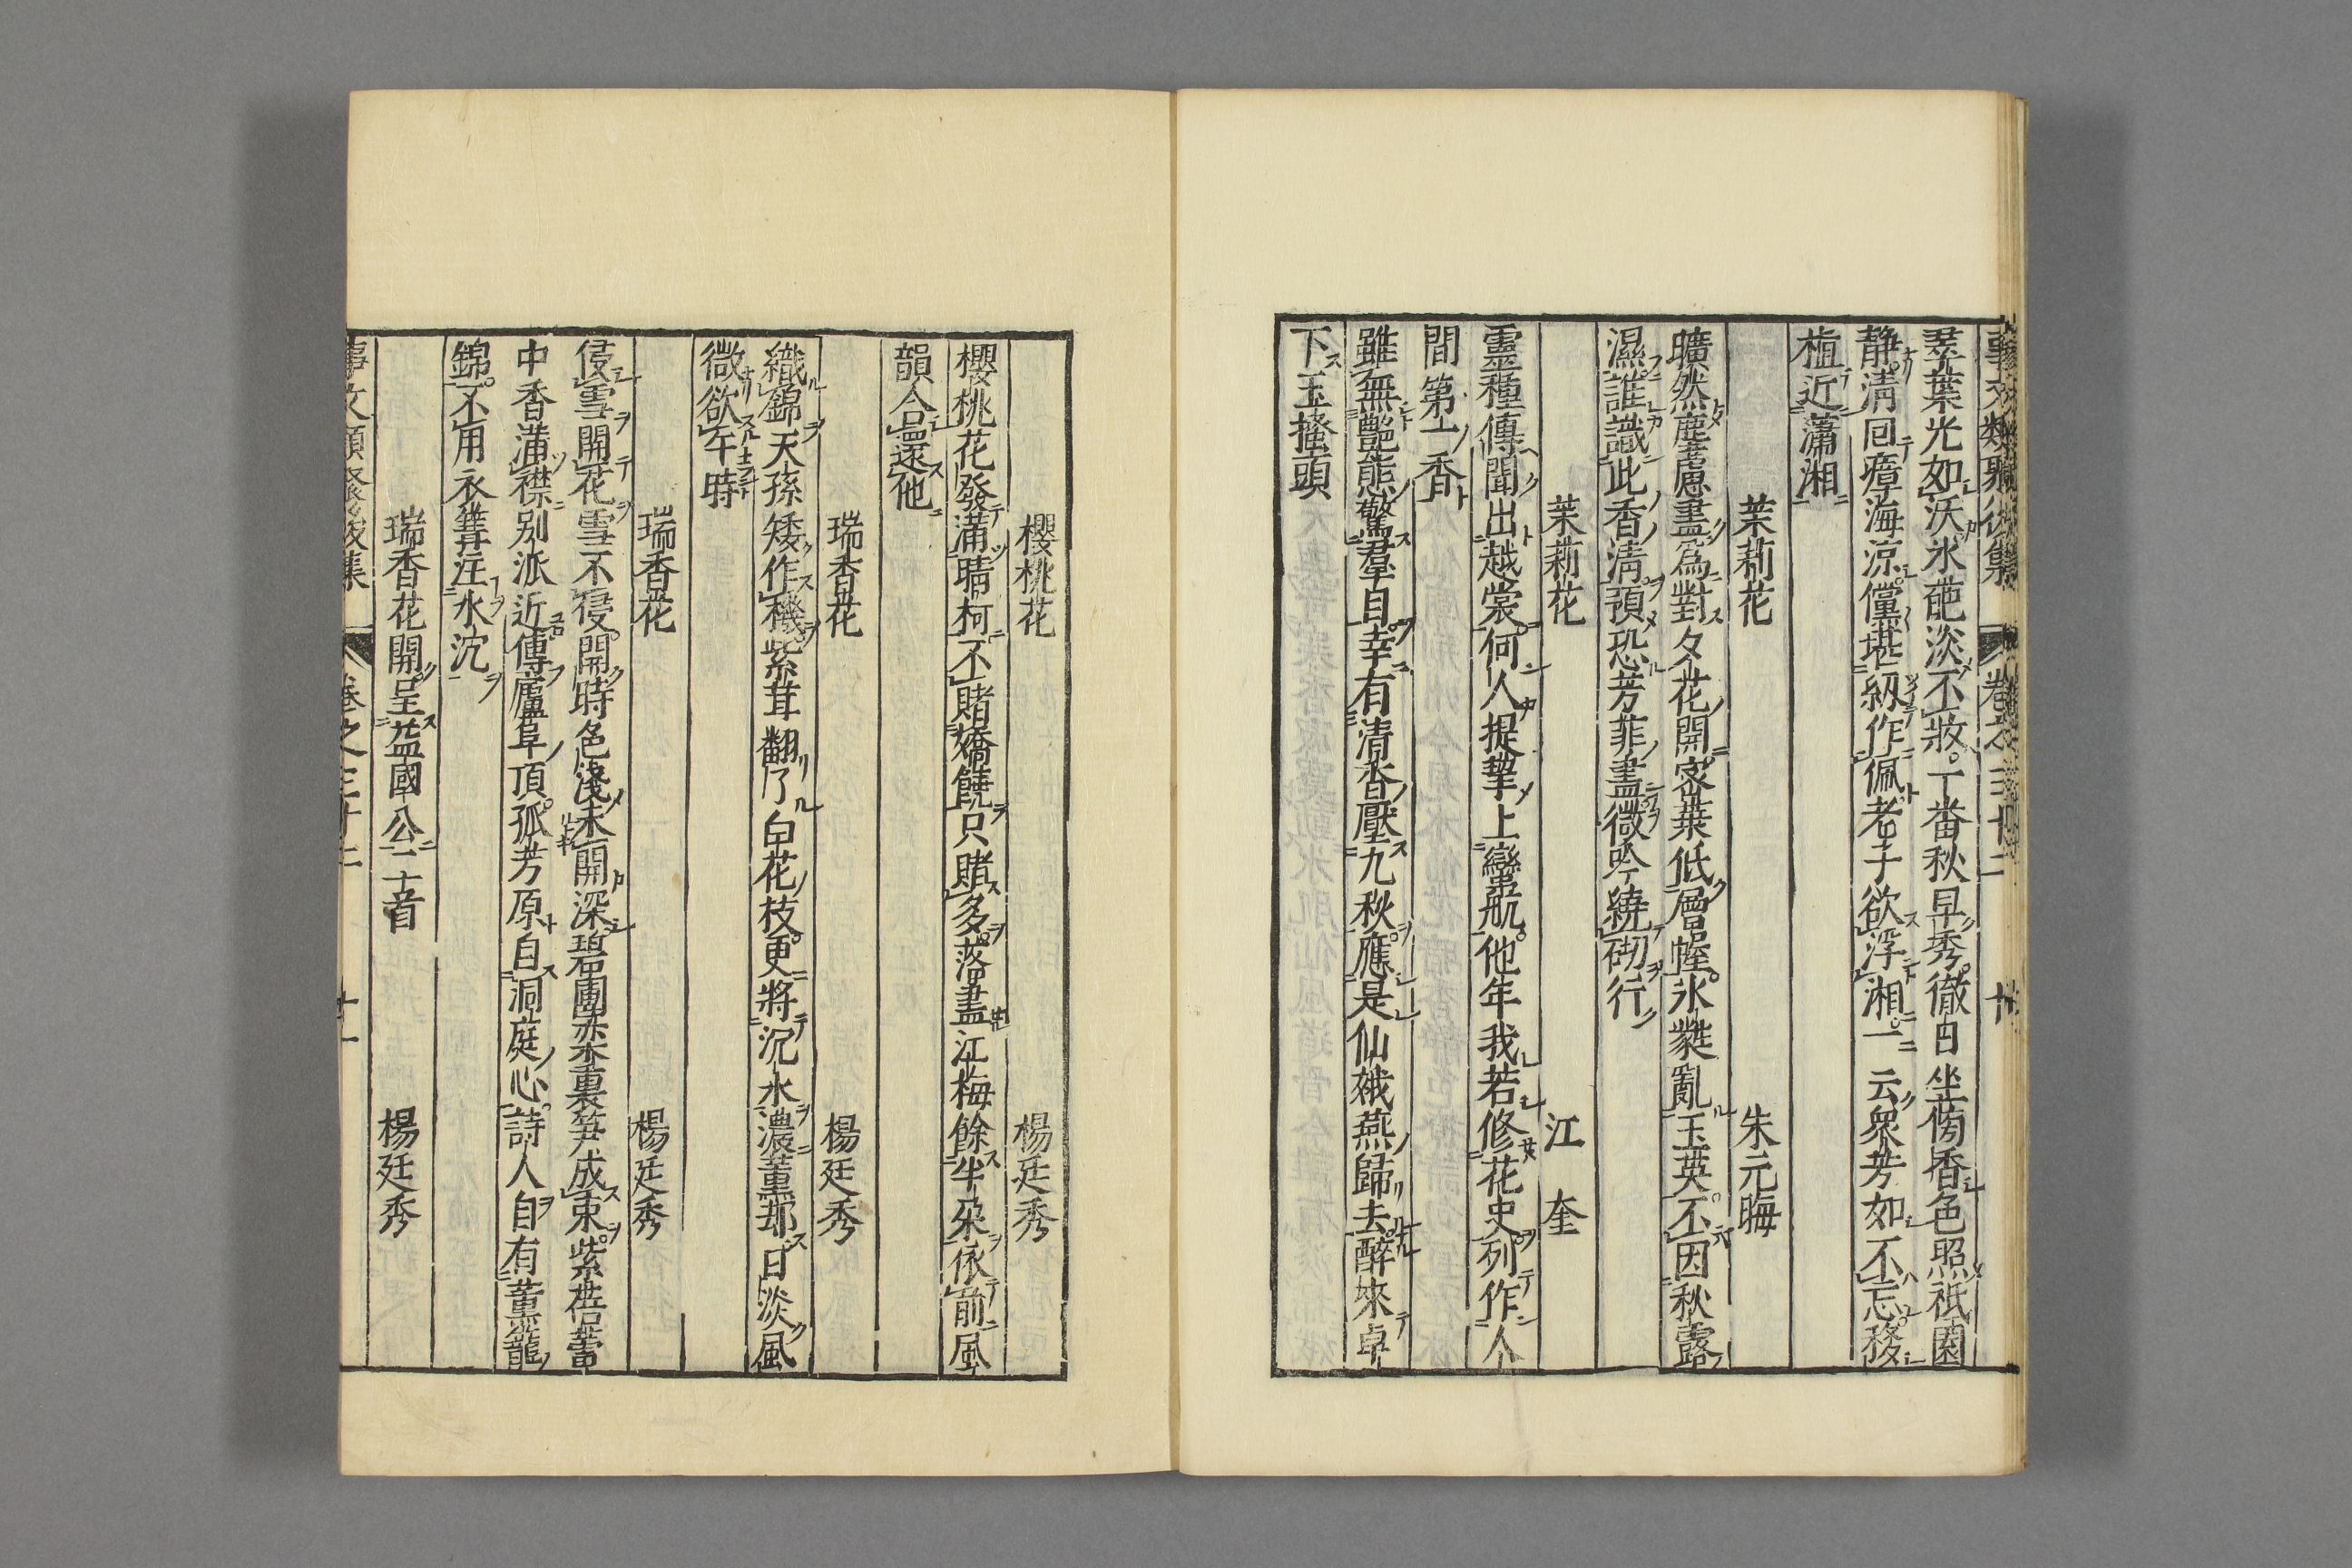 事文類聚後集 卷之三十二
翠葉光如沃氷葩淡不妝。一畨秋早秀。徹日坐傍香色照祗園
静。清回瘴海涼。儻堪紉作佩。老子欲浮湘。一云衆芳如不忘。移
植近瀟湘
茉莉花 朱元晦
曠然塵慮盡為對夕花開。密葉低層幄。氷蕤亂玉英。不因秋露
濕。誰識此香清。預恐芳菲盡微吟繞砌行
茉莉花 江奎
靈種傳聞出越裳。何人提挈上蠻航。他年我若修花史。列作人
間第一香
雖無艶態驚羣目。幸有清香壓九秋。應是仙娥燕歸去。醉來卓
下玉搔頭
櫻桃花 楊廷秀
櫻桃花發滿晴柯。不賭嬌饒只賭多。落盡江梅餘半朶。依前風
韻合還他
瑞香花 楊廷秀
織錦天孫矮作機。紫茸翻了白花枝。更將沉水濃薰却。日淡風
微欲午時
瑞香花 楊廷秀
侵雪開花雪不侵。開時色淺未開深。碧團欒裏笋成束。紫蓓蕾
中香滿襟。別派近傳廬阜頂。孤芳原自洞庭心。詩人自有薰籠
錦。不用衣篝注水沉
瑞香花開。呈益國公二首 楊廷秀
事文類聚後集 卷之三十二 十一